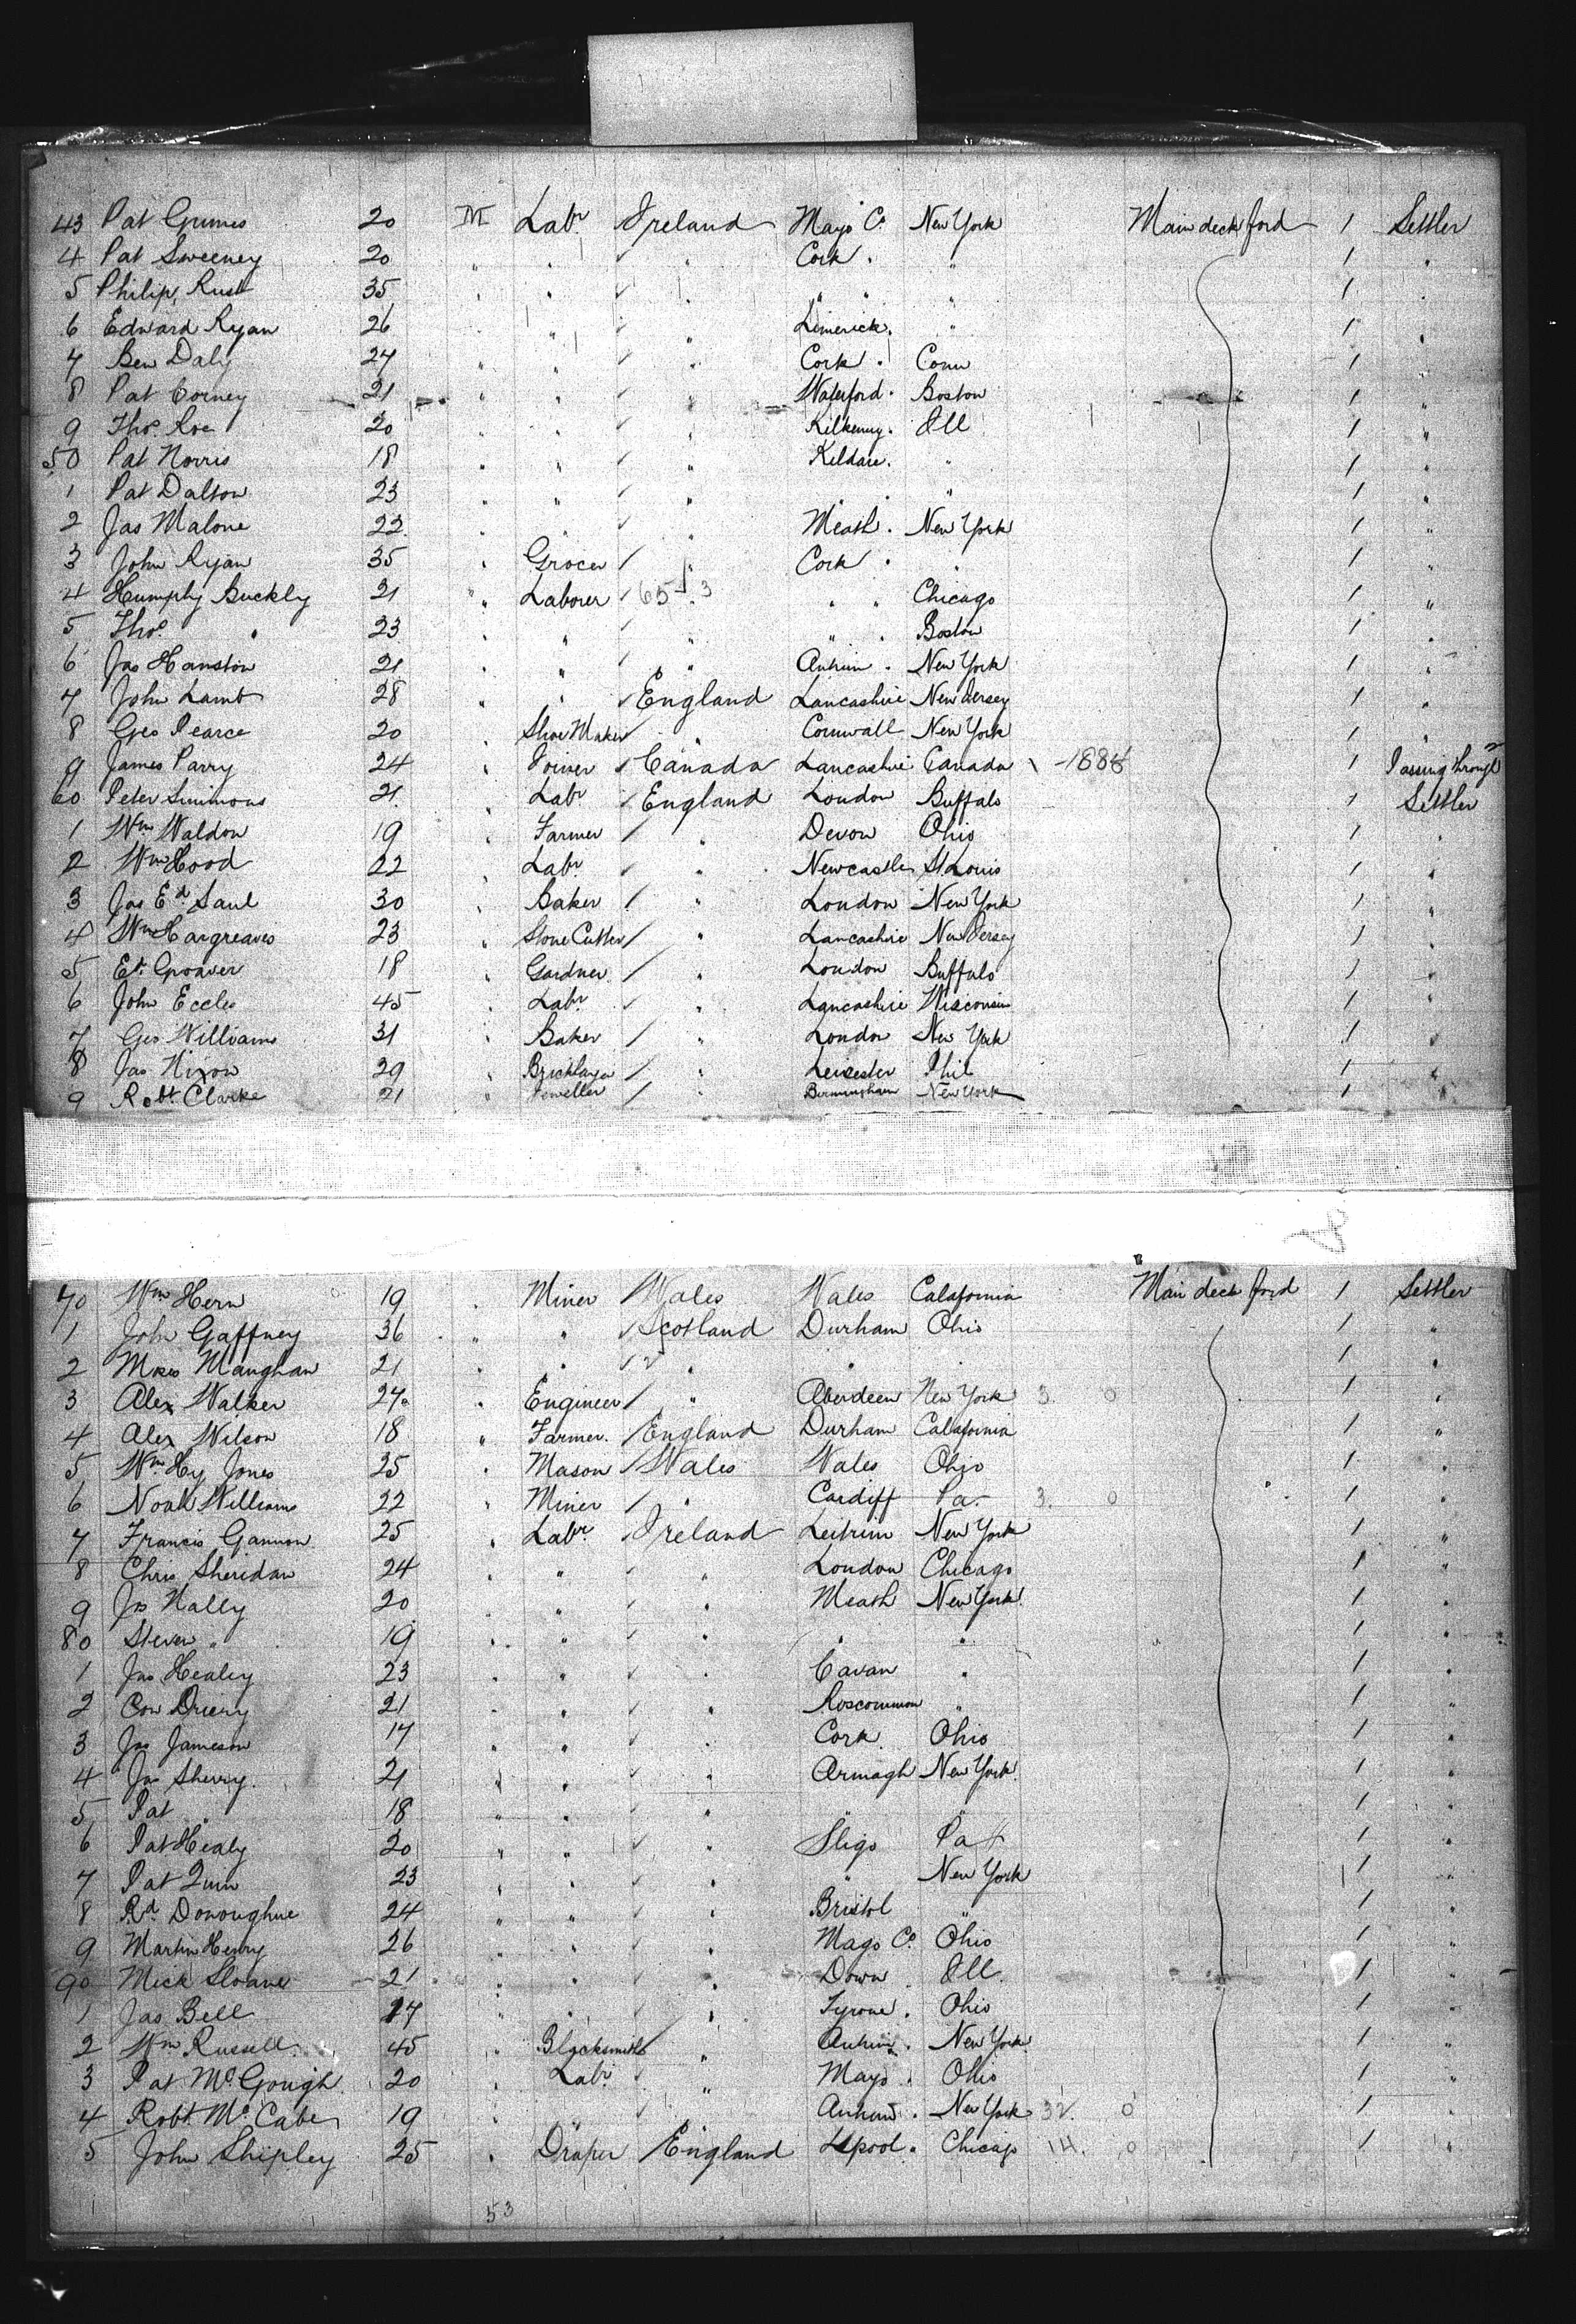 43 Pat Grimes 20 M Labr Ireland Mayo Co New York Main deck ford 1 Settler
4 Pat Sweeney 20 " " " Cork " " 1 "
5 Philip Rust 35 " " " " " " 1 "
6 Edward Ryan 26 " " " Limerick " 1 "
7 Ben Daly 24 " " " Cork " Conn 1 "
8 Pat Corney 21 " " " Waterford Boston 1 "
9 Thos Roe 20 " " " Kilkenny Ill 1 "
50 Pat Norris 18 " " " Kildare " 1 "
1 Pat Dalton 23 " " " " " 1 "
2 Jas Malone 22 " " " Meath New York 1 "
3 John Ryan 35 " Grocer " Cork " " 1 "
4 Humphy Buckly 21 " Laborer 65 3 " " Chicago 1 "
5 Thos " 23 " " " " " Boston 1 "
6 Jas Hanston 21 " " " Antrim New York 1 "
7 John Lamb 28 " " England Lancashire New Jersey 1 "
8 Geo Pearce 20 " Shoe Maker " Cornwall New York 1 "
9 James Parry 24 " Joiner Canada Lancashire Canada 1 Passing through
60 Peter Simmons 21 " Labr England London Buffalo 1 Settler
1 Wm Waldon 19 " Farmer " Devon Ohio 1 "
2 Wm Hood 22 " Labr " Newcastle St Louis 1 "
3 Jas Ed Saul 30 " Baker " London New York 1 "
4 Wm Hargreaves 23 " Stone Cutter " Lancashire New Jersey 1 "
5 18 " Gardner " London Buffalo 1 "
6 John Eccles 45 " Labr " Lancashire Wisconsin 1 "
7 Geo Williams 31 " Baker " London New York 1 "
8 Jas Nixon 29 " Bricklayer " Leicester Phil 1 "
9 Robt Clarke 21 " Jeweller " Birmingham New York 1 "
70 Wm Hern 19 " Miner Wales Wales Calafornia Main deck ford 1 Settler
1 John Gaffney 36 " " Scotland Durham Ohio 1 "
2 Maughan 21 " " " " " 1 "
3 Alex Walker 24 " Engineer " Aberdeen New York 3 0 1 "
4 Alex Wilson 18 " Farmer England Durham Calafornia 1 "
5 Wm Hy Jones 25 " Mason Wales Wales Ohio 1 "
6 Noah Williams 22 " Miner " Cardiff Pa 3 0 1 "
7 Francis Gannon 25 " Labr Ireland Leitrim New York 1 "
8 Chris Sheridan 24 " " " London Chicago 1 "
9 Jas Nally 20 " " " Meath New York 1 "
80 Steven " 19 " " " " " 1 "
1 Jas Healey 23 " " " Cavan " 1 "
2 Con 21 " " " Roscommon " 1 "
3 Jas Jameson 17 " " " Cork Ohio 1 "
4 Jas Sherry 21 " " " Armagh New York 1 "
5 Pat " 18 " " " " " 1 "
6 Pat Healy 20 " " " Sligo Pa 1 "
7 Pat Quin 23 " " " " New York 1 "
8 Rd Donoughue 24 " " " Bristol " 1 "
9 Martin Henry 26 " " " Mago Co Ohio 1 "
90 Mick Sloane 21 " " " Down Ill 1 "
1 Jas Bell 27 " " " Tyrone Ohio 1 "
2 Wm Russell 45 " Blacksmith " Antrim New York 1 "
3 Pat McGough 20 " Labr " Mayo Ohio 1 "
4 Robt McCabe 19 " " " Antrim New York 32 0 1 "
5 John Shipley 25 " Draper England Lpool Chicago 14 0 1 "
53